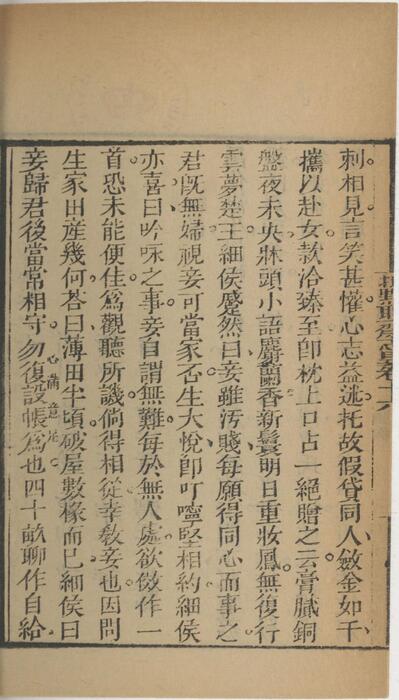 刺相見言笑甚懽心志益迷托故假貸同人斂金如干
攜以赴女款洽臻至卽枕上口占一絕贈之云膏膩銅
盤夜未央牀頭小語麝蘭香新鬟明日重妝鳳無復行
雲夢楚王細侯蹙然曰妾雖汚賤每願得同心而事之
君旣無婦視妾可當家否生大悅卽叮嚀堅相約細侯
亦喜曰吟咏之事妾自謂無難每於無人處欲傚作一
首恐未能便佳爲觀聽所譏倘得相從幸敎妾也因問
生家田産幾何荅曰薄田半頃破屋數椽而已細侯曰
妾歸君後當常相守勿復設帳爲也四十畝聊作自給
心滿意足